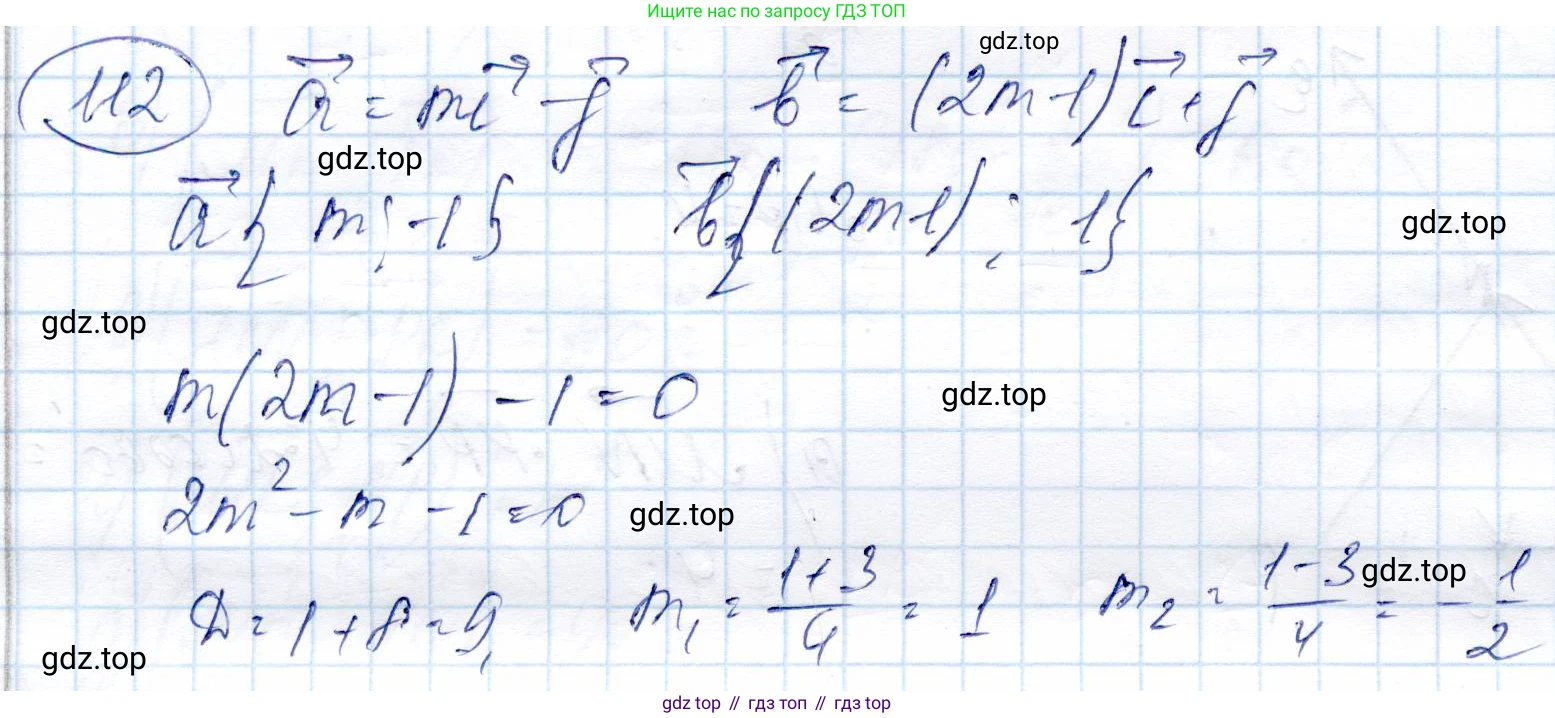 Ищите нас по запросу ГДЗ ТОП
gdz.top
112 a⃗ = mi⃗ - j⃗ b⃗ = (2m-1)i⃗ + j⃗
gdz.top
a⃗{m; -1} b⃗{(2m-1); 1}
gdz.top
gdz.top
m(2m-1) - 1 = 0
gdz.top
2m² - m - 1 = 0
gdz.top
D = 1 + 8 = 9, m₁ = (1+3)/4 = 1 m₂ = (1-3)/4 = -1/2
gdz.top
gdz.top
gdz.top // гдз топ // гдз top